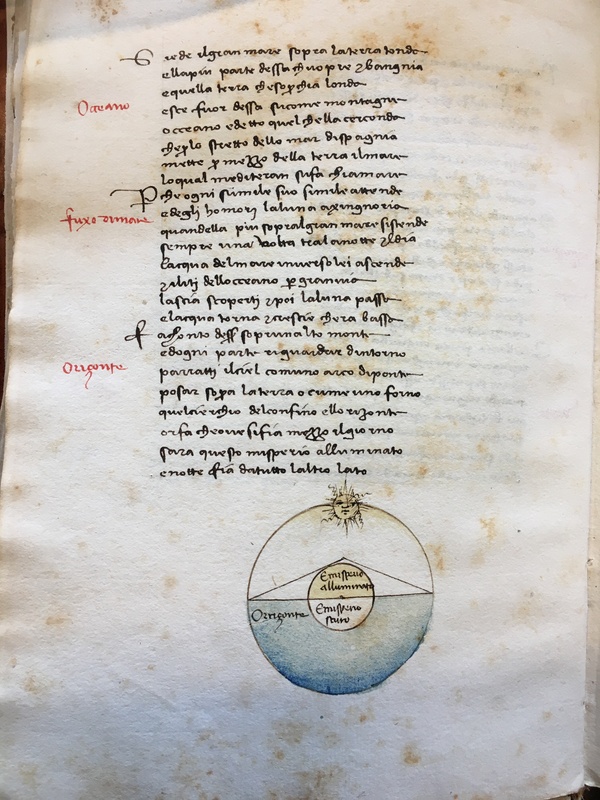 Siede il gran mare sopra la terra tonda
ella piu parte dessa chuopre & bangnia
e quella terra che soperchia londa
este fuor dessa sicome montagna
Oceano
oceano e detto quel chella cerconda
che plo stretto dello mar dispagnia
mette p mezzo della terra il mare
lo qual mediteran si fa chiamare
Pche ogni simile suo simile attende
fluxo di mare
e degli homorj la luna a singnoria
quandella piu sopral gran mare si stende
sempre una volta tra la notte & l dia
lacqua del mare inverso lei ascende
& liti dello oceano p gran via
lascia scoperti & poi la luna passa
e lacqua torna & crescie chera bassa
Fa chonto desser sopr un alto monte
ed ogni parte riguardar dintorno
Orizonte
parratti il ciel comuno arco di ponte
posar sopa la terra o cume uno forno
quel cierchio del confino ello rizonte
or fa che ove si fia mezzo il giorno
sara questo misperio alluminato
e notte fia da tutto laltro lato
Emisperio
alluminato
Orizonte
Emisperio
scuro